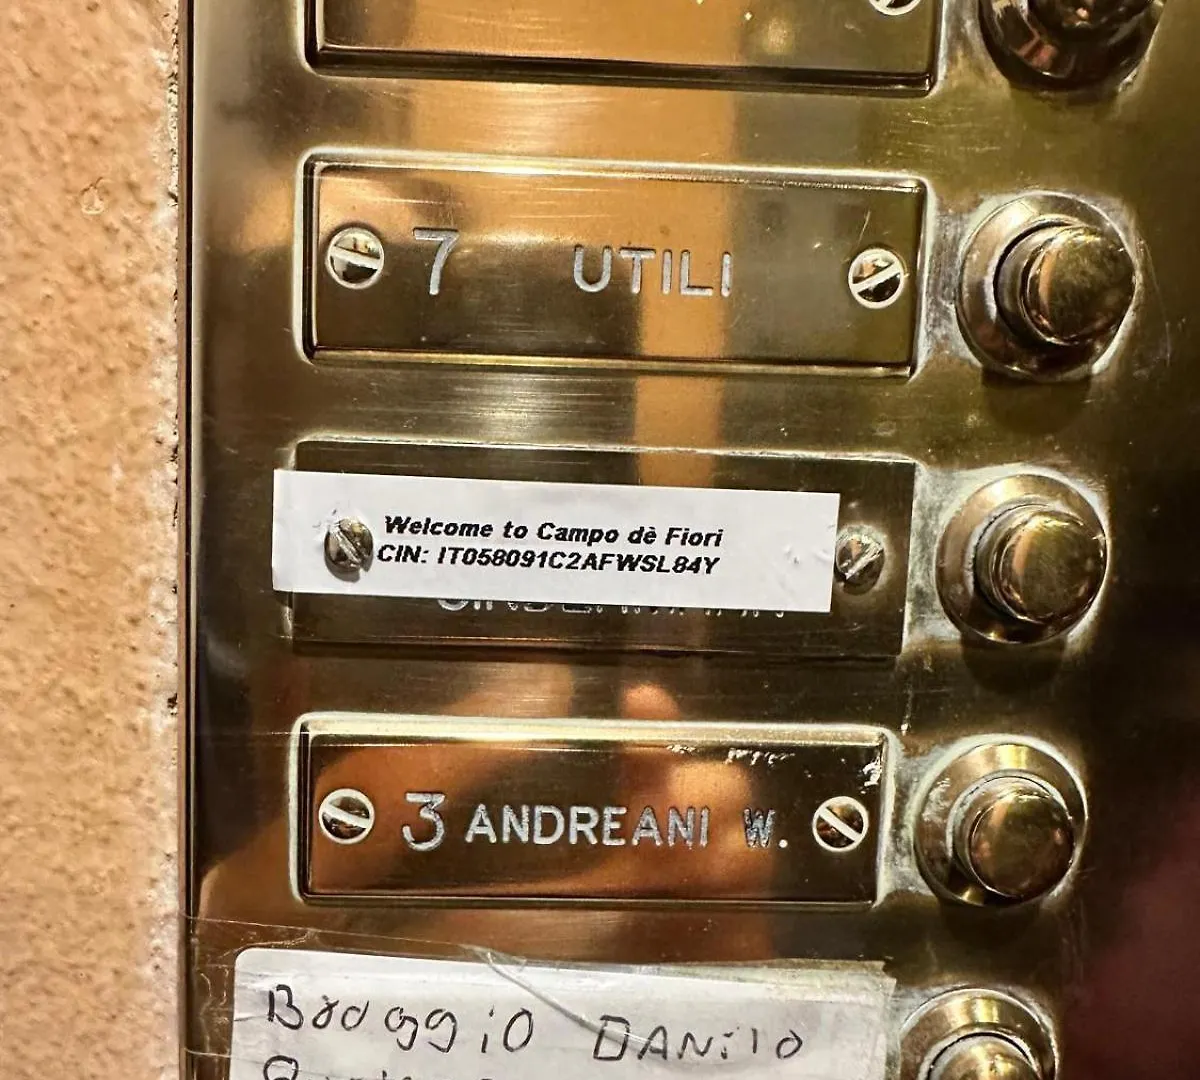 7 UTILI
Welcome to Campo dè Fiori
CIN: IT058091C2AFWSL84Y
3 ANDREANI W.
Baaggio DANilo